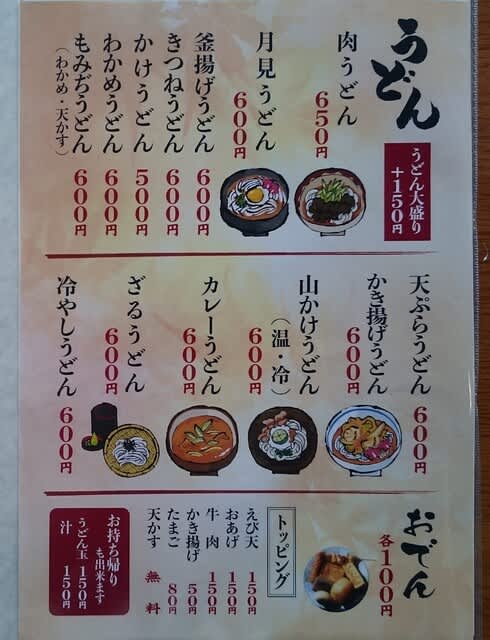 うどん
うどん大盛り
+150円
肉うどん
650円
月見うどん
600円
釜揚げうどん
600円
きつねうどん
600円
かけうどん
500円
わかめうどん
600円
もみぢうどん
(わかめ・天かす)
600円
天ぷらうどん
600円
かき揚げうどん
600円
山かけうどん
(温・冷)
600円
カレーうどん
600円
ざるうどん
600円
冷やしうどん
600円
おでん
各100円
トッピング
えび天 150円
おあげ 150円
牛肉 150円
かき揚げ 50円
たまご 80円
天かす 無料
お持ち帰り
も出来ます
うどん玉 150円
汁 150円